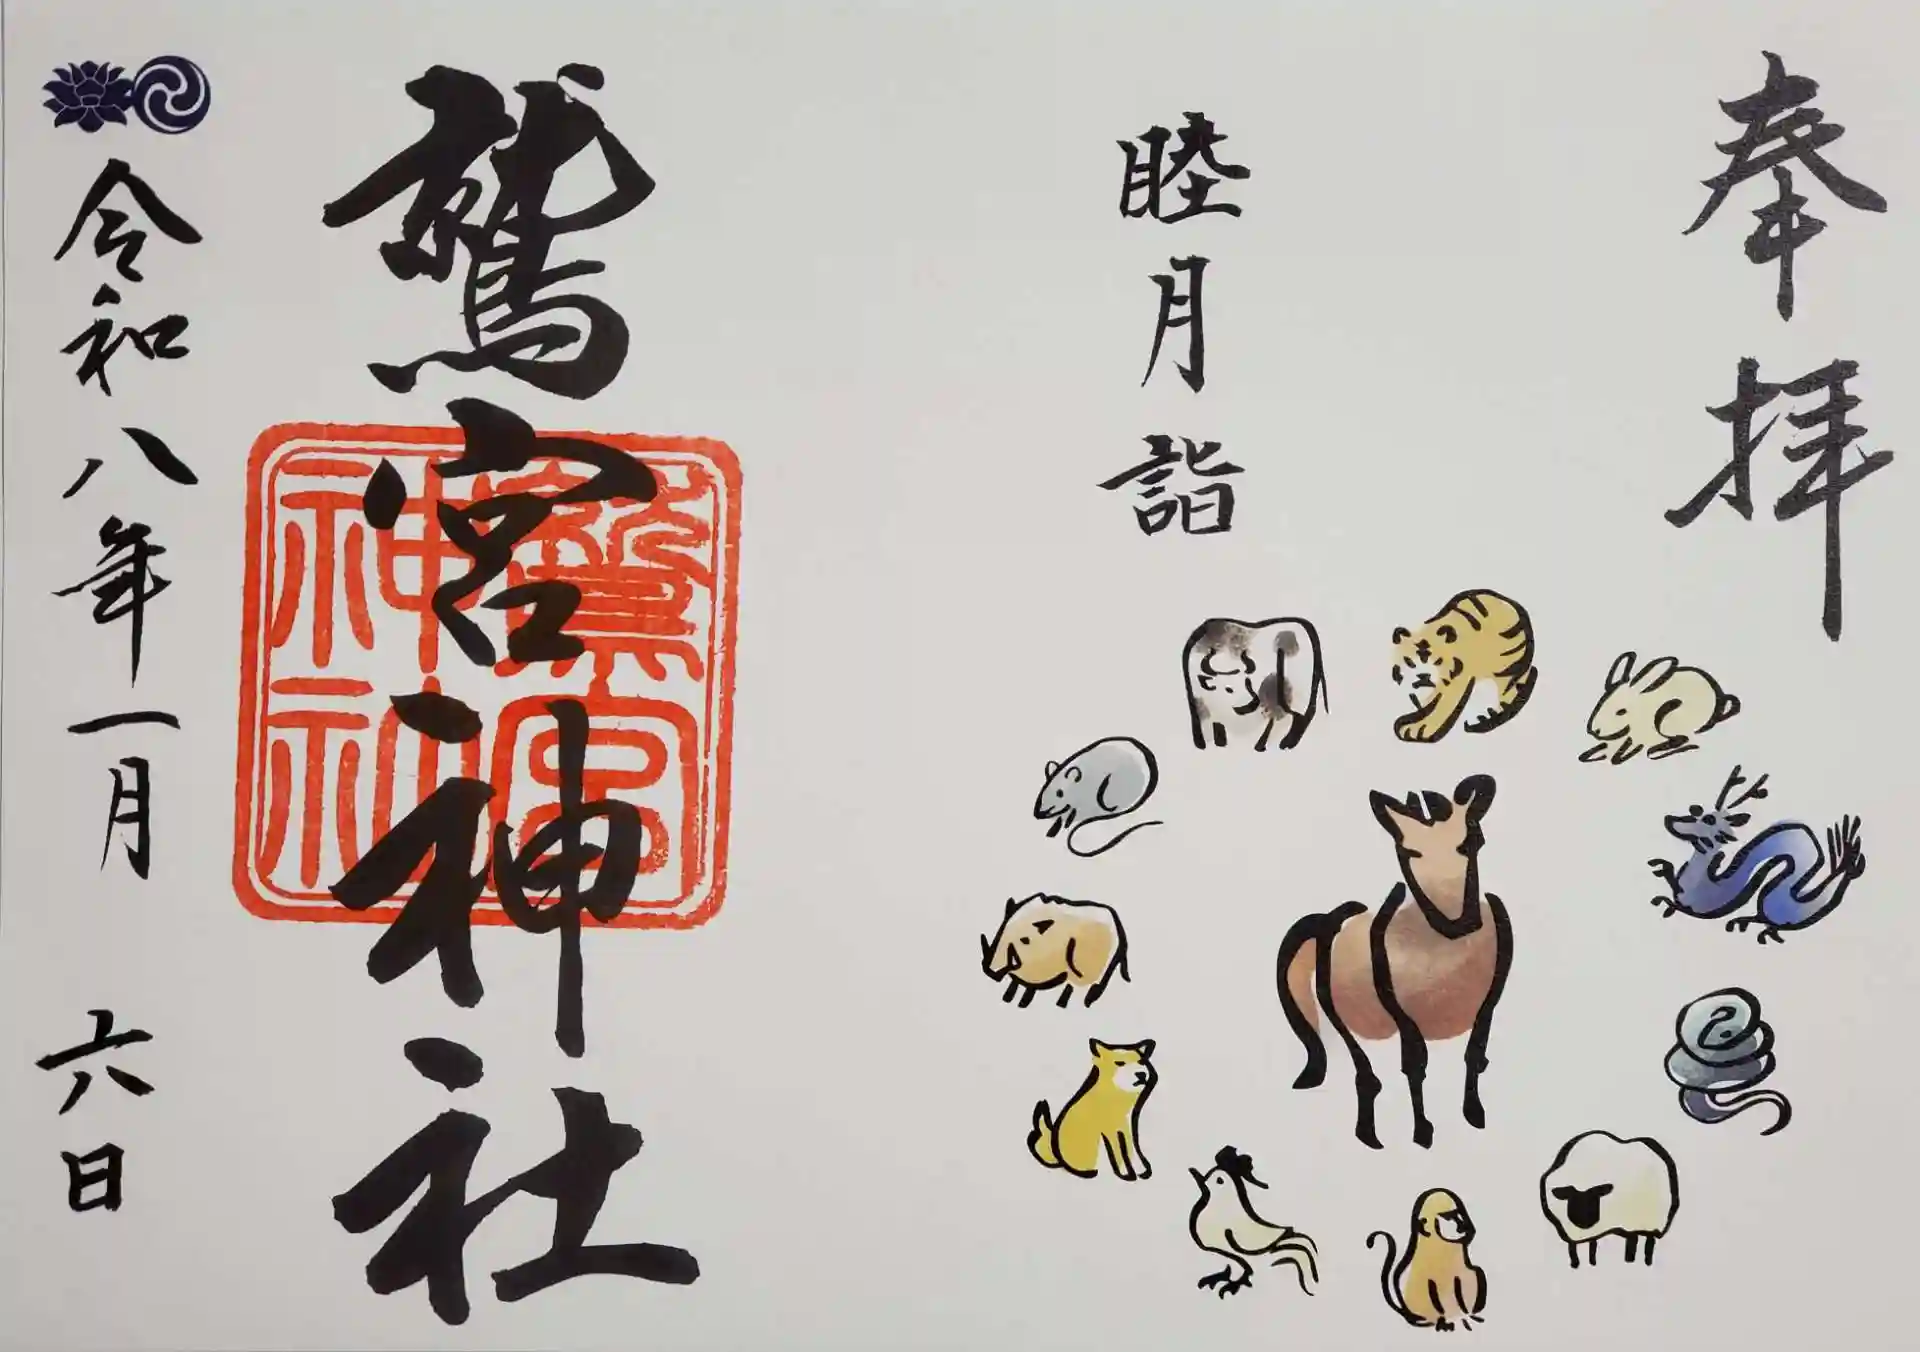 奉拝
睦月詣
鷲宮神社
鷲宮
神社
令和八年一月六日